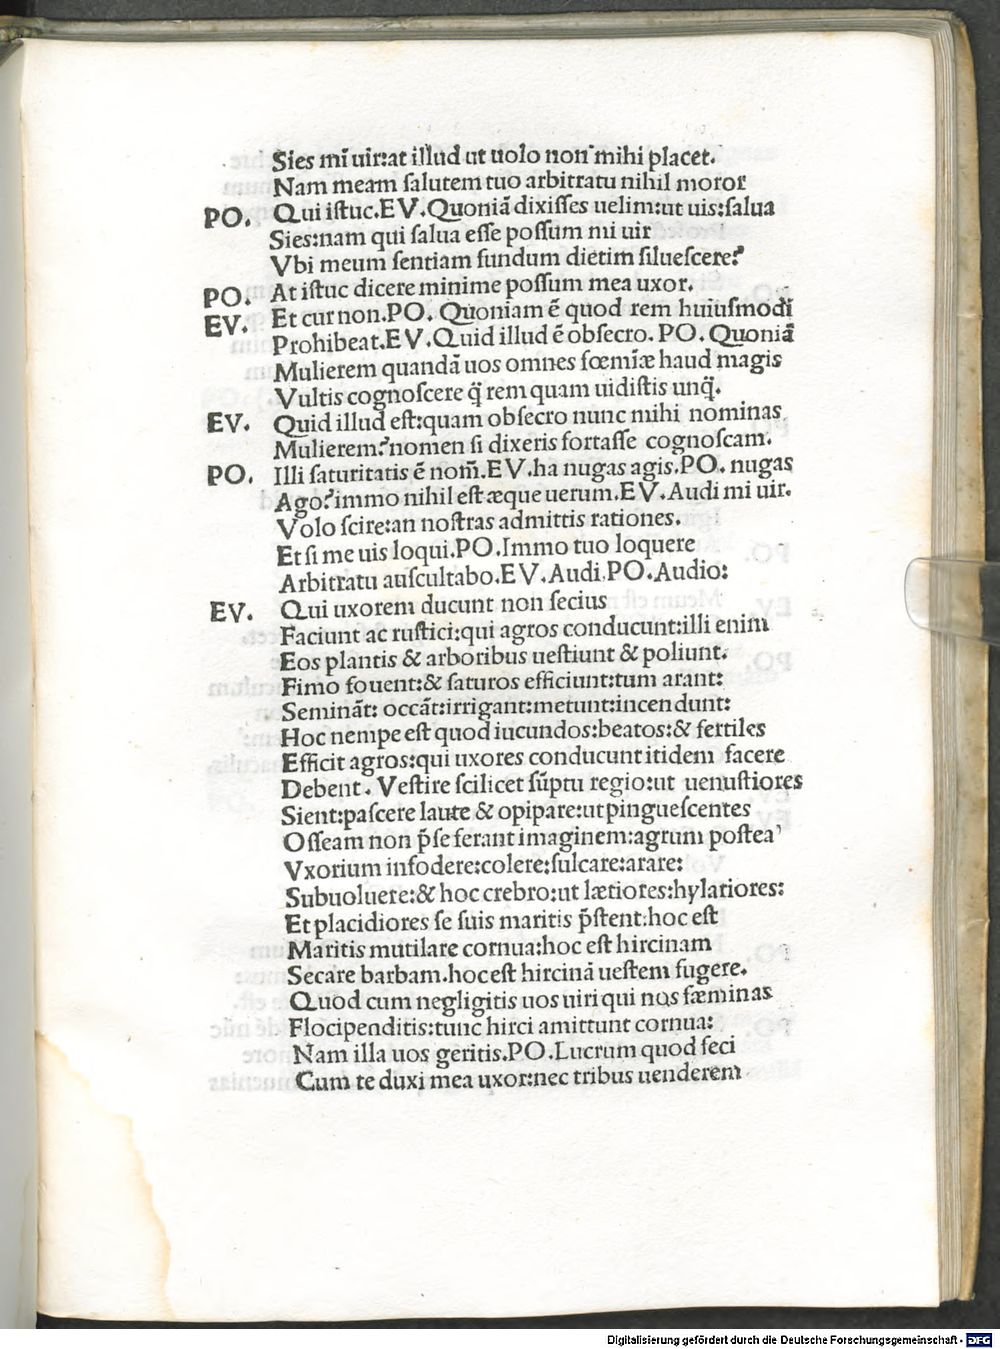 Sies mī uir:at illud ut uolo non mihi placet.
Nam meam ſalutem tuo arbitratu nihil moror
PO. Qui iſtuc.EV.Quoniā dixiſſes uelim:ut uis:ſalua
Sies:nam qui ſalua eſſe poſſum mi uir
Vbi meum ſentiam fundum dietim ſilueſcere?
PO. At iſtuc dicere minime poſſum mea uxor.
EV. Et cur non.PO. Quoniam ē quod rem huiuſmodi
Prohibeat.EV.Quid illud ē obſecro. PO. Quoniā
Mulierem quandā uos omnes fœmīæ haud magis
Vultis cognoſcere q̄ rem quam uidiſtis unq̄.
EV. Quid illud eſt:quam obſecro nunc mihi nominas
Mulierem?nomen ſi dixeris fortaſſe cognoſcam.
PO. Illi ſaturitatis ē nom̄.EV.ha nugas agis.PO. nugas
Ago?immo nihil eſt æque uerum.EV.Audi mi uir.
Volo ſcire:an noſtras admittis rationes.
Et ſi me uis loqui.PO.Immo tuo loquere
Arbitratu auſcultabo.EV.Audi.PO.Audio:
EV. Qui uxorem ducunt non ſecius
Faciunt ac ruſtici:qui agros conducunt:illi enim
Eos plantis & arboribus ueſtiunt & poliunt.
Fimo fouent:& ſaturos efficiunt:tum arant:
Semināt: occāt:irrigant:metunt:incendunt:
Hoc nempe eſt quod iucundos:beatos:& fertiles
Efficit agros:qui uxores conducunt itidem facere
Debent. Veſtire ſcilicet ſūptu regio:ut uenuſtiores
Sient:paſcere laute & opipare:ut pingueſcentes
Oſſeam non p̄ſe ferant imaginem:agrum poſtea
Vxorium infodere:colere:ſulcare:arare:
Subuoluere:& hoc crebro:ut lætiores:hylariores:
Et placidiores ſe ſuis maritis p̄ſtent:hoc eſt
Maritis mutilare cornua:hoc eſt hircinam
Secare barbam.hoc eſt hircinā ueſtem fugere.
Quod cum negligitis uos uiri qui nos fæminas
Flocipenditis:tunc hirci amittunt cornua:
Nam illa uos geritis.PO.Lucrum quod feci
Cum te duxi mea uxor:nec tribus uenderem
Digitalisierung gefördert durch die Deutsche Forschungsgemeinschaft - DFG